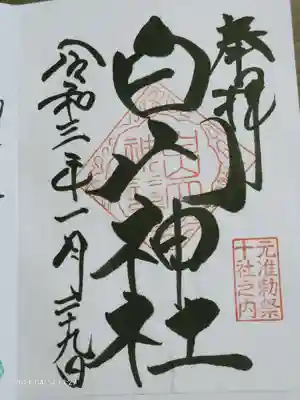 奉拝
白山神社
令和三年一月二十九日
元准勅祭
十社之内